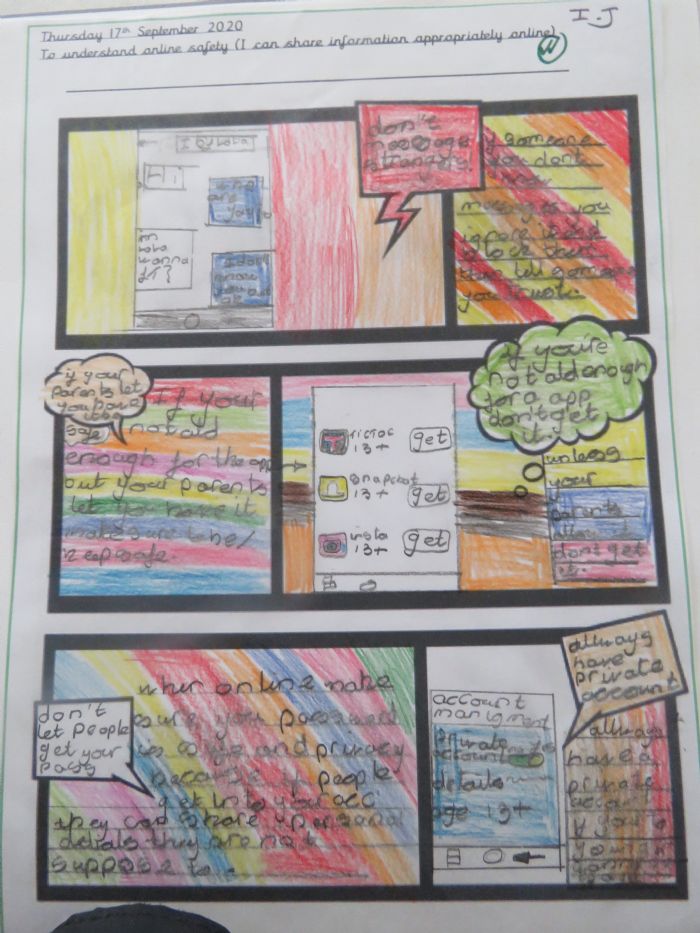 I.J
Thursday 17th September 2020
To understand online safety (I can share information appropriately online)
Hi
who
are
you
im
wanna
I don't
don't
message
strangers
if someone
you dont
know
messages you
ignore it and
block them
then tell someone
you trust.
if your
parents let
you have
safe
If your
not old
enough for the app
but your parents
let you have it
make sure to be/
keep safe.
TicToc
13+
get
Snapchat
13+
get
insta
13+
get
if you're
not old enough
for a app
don't get
it
unless
your
parents
allow it
dont get
it.
don't
let people
get your
pass
when online make
sure your password
is safe and privacy
because if people
get into your acc
they can share up personal
details they are not
suppose to.
account
manigment
private
account
details
age 13+
allways
have
private
account
allways
have a
private
account
if you're